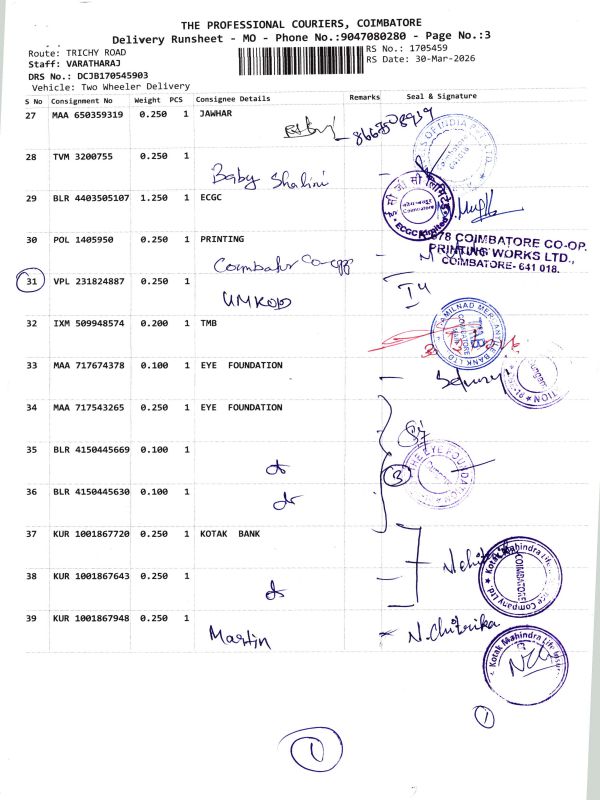 THE PROFESSIONAL COURIERS, COIMBATORE
Delivery Runsheet - MO - Phone No.:9047080280 - Page No.:3
Route: TRICHY ROAD
RS No.: 1705459
Staff: VARATHARAJ
RS Date: 30-Mar-2026
DRS No.: DCJB170545903
Vehicle: Two Wheeler Delivery
S No Consignment No Weight PCS Consignee Details Remarks Seal & Signature
27 MAA 650359319 0.250 1 JAWHAR
28 TVM 3200755 0.250 1
Baby Shalini
29 BLR 4403505107 1.250 1 ECGC
ECGC Limited
Coimbatore
30 POL 1405950 0.250 1 PRINTING
K-678 COIMBATORE CO-OP.
PRINTING WORKS LTD.,
COIMBATORE- 641 018.
31 VPL 231824887 0.250 1
32 IXM 509948574 0.200 1 TMB
TAMILNAD MERCANTILE BANK LTD
33 MAA 717674378 0.100 1 EYE FOUNDATION
34 MAA 717543265 0.250 1 EYE FOUNDATION
35 BLR 4150445669 0.100 1
THE EYE FOUNDATION
3
36 BLR 4150445630 0.100 1
37 KUR 1001867720 0.250 1 KOTAK BANK
38 KUR 1001867643 0.250 1
COIMBATORE
39 KUR 1001867948 0.250 1
Martin
N.Chitrika
Kotak Mahindra Life
1
1